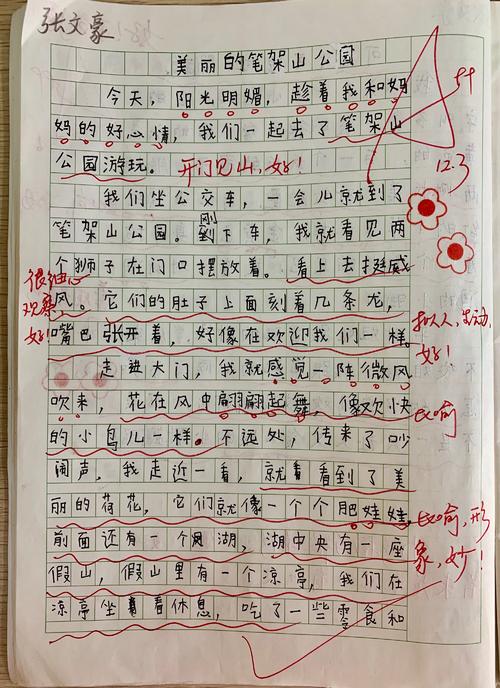 张文豪
美丽的笔架山公园
今天，阳光明媚，趁着我和妈
妈的好心情，我们一起去了笔架山
公园游玩。开门见山，好！
12.3
我们坐公交车，一会儿就到了
笔架山公园。刚到下车，我就看见两
个狮子在门口摆放着。看上去挺威
很细心
观察，
好！
风。它们的肚子上面刻着几条龙，
嘴巴张开着，好像在欢迎我们一样。
拟人，生动，
好！
走进大门，我就感觉一阵微风
吹来，花在风中翩翩起舞，像欢快
比喻
的小鸟儿一样。不远处，传来了吵
闹声，我走近一看，就看看到了美
丽的荷花，它们就像一个个肥娃娃，
比喻，形
象，妙！
前面还有一个湖，湖中央有一座
假山，假山里有一个凉亭，我们在
凉亭坐着休息，吃了一些零食和